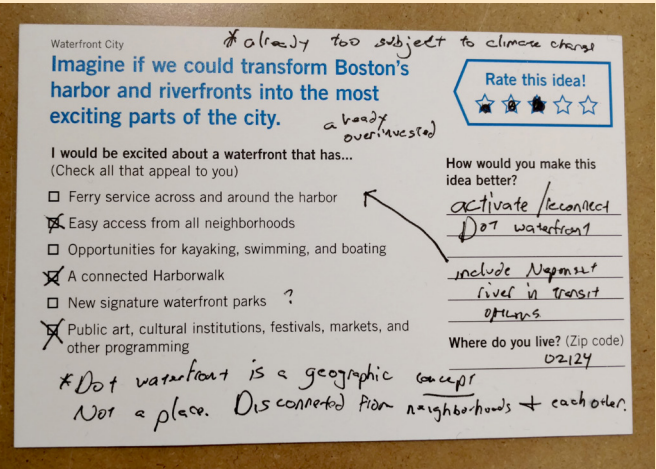 * already too subject to climate change
Waterfront City
Imagine if we could transform Boston's
harbor and riverfronts into the most
exciting parts of the city.
already
overinvested
Rate this idea!
I would be excited about a waterfront that has...
(Check all that appeal to you)
Ferry service across and around the harbor
Easy access from all neighborhoods
Opportunities for kayaking, swimming, and boating
A connected Harborwalk
New signature waterfront parks ?
Public art, cultural institutions, festivals, markets, and
other programming
How would you make this
idea better?
activate/reconnect
Dot waterfront
include Neponset
river in transit
options
Where do you live? (Zip code)
02124
*Dot waterfront is a geographic concept
Not a place. Disconnected from neighborhoods + each other.